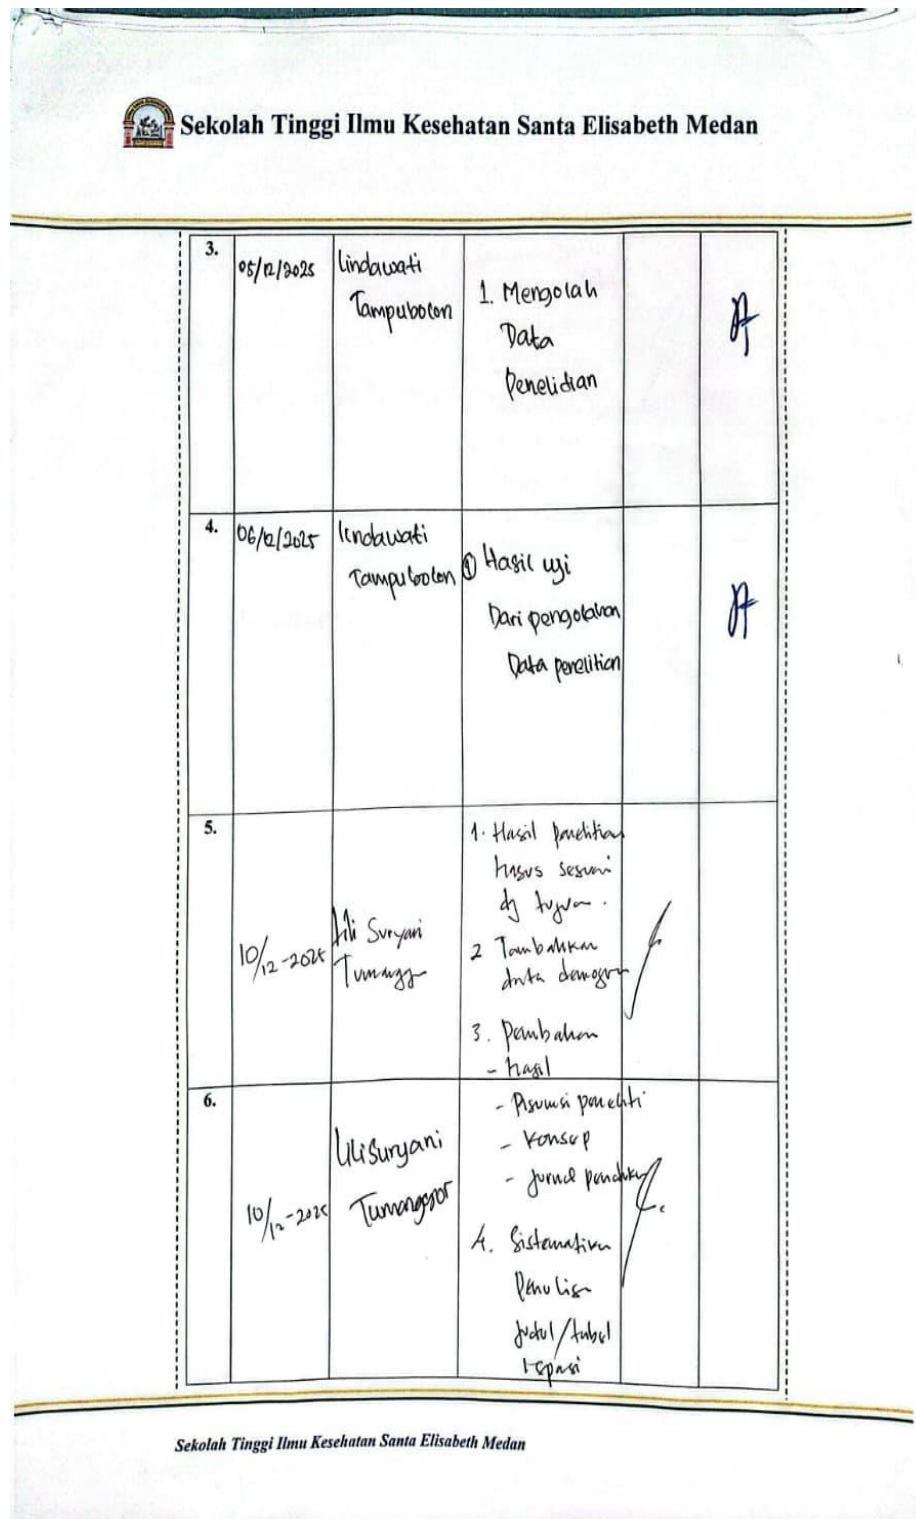 Sekolah Tinggi Ilmu Kesehatan Santa Elisabeth Medan
3.
05/12/2025
lindawati
Tampubolon
1. Mengolah
Data
Penelitian
4.
06/12/2025
lindawati
Tampubolon
① Hasil uji
Dari pengolahan
Data penelitian
5.
10/12-2025
Lili Suryani
1. Hasil penelitian
harus sesuai
dg tujuan.
2 Tambahkan
data demografi
3. Pembahasan
- hasil
6.
10/12-2025
Lili Suryani
Tumanggor
- Asumsi peneliti
- Konsep
- Jurnal pendukung
4. Sistematika
Penulisan
Judul/tabel
spasi
Sekolah Tinggi Ilmu Kesehatan Santa Elisabeth Medan